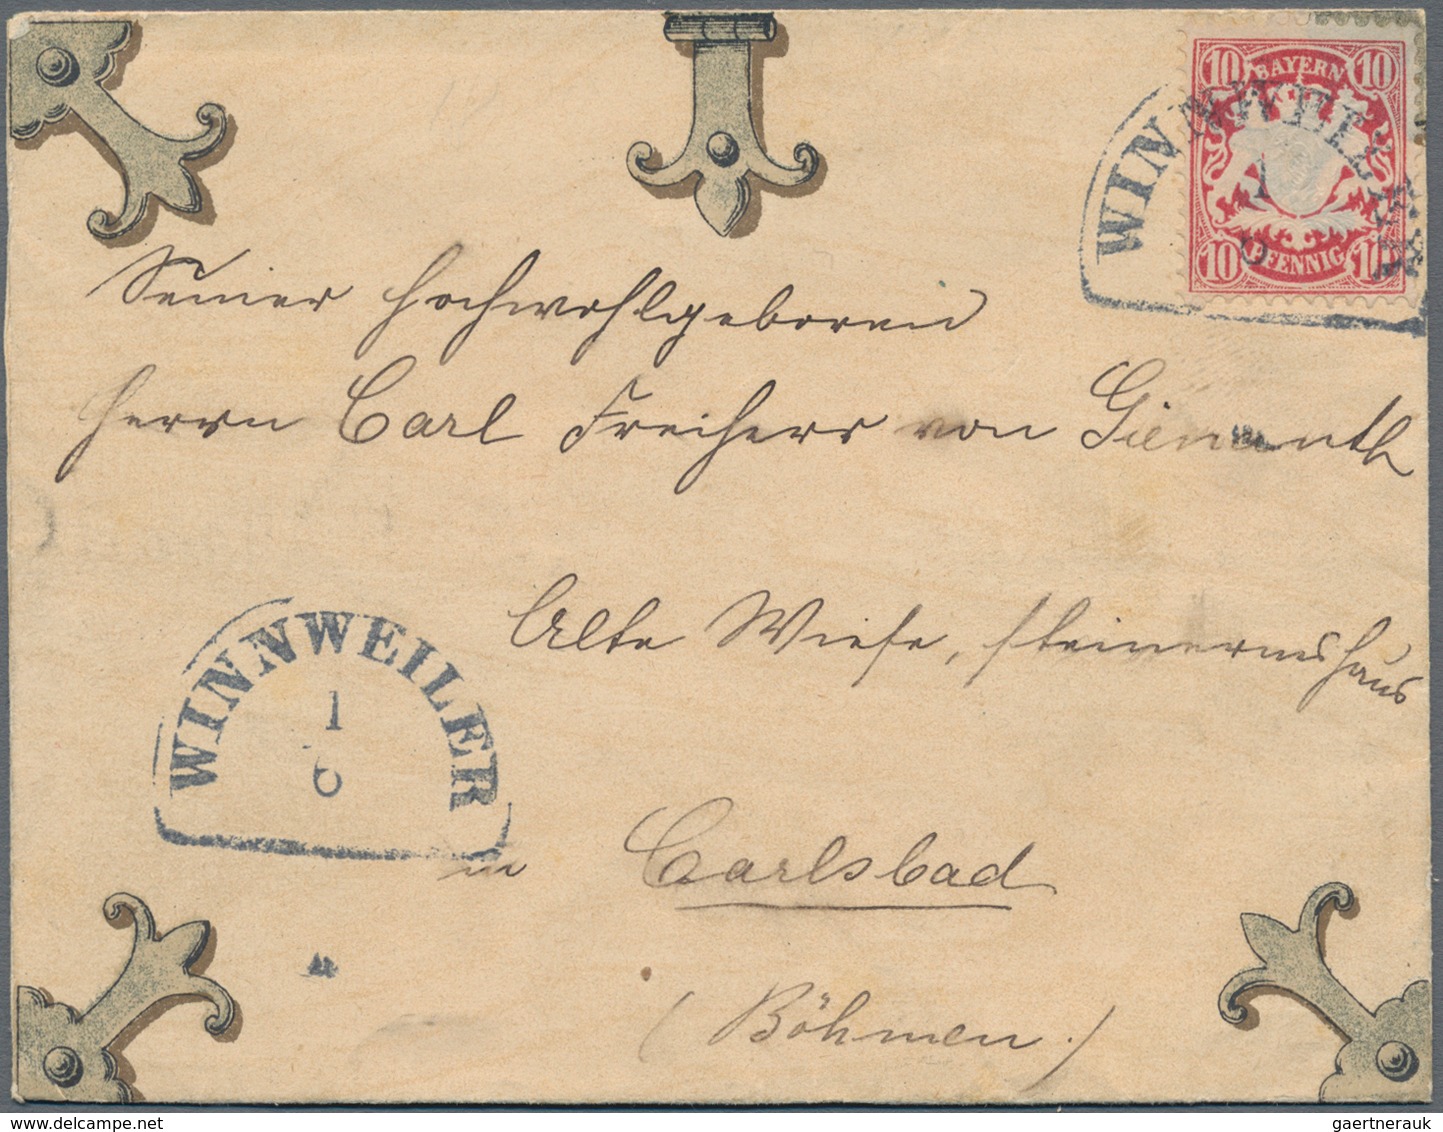 10 BAYERN 10
10 PFENNIG 10
WINNWEILER
1
6
Seiner Hochwohlgeboren
Herrn Carl Freiherr von Gienanth
Alte Wiese, steinernes Haus
WINNWEILER
1
6
in Carlsbad
(Böhmen.)
gaertnerauk